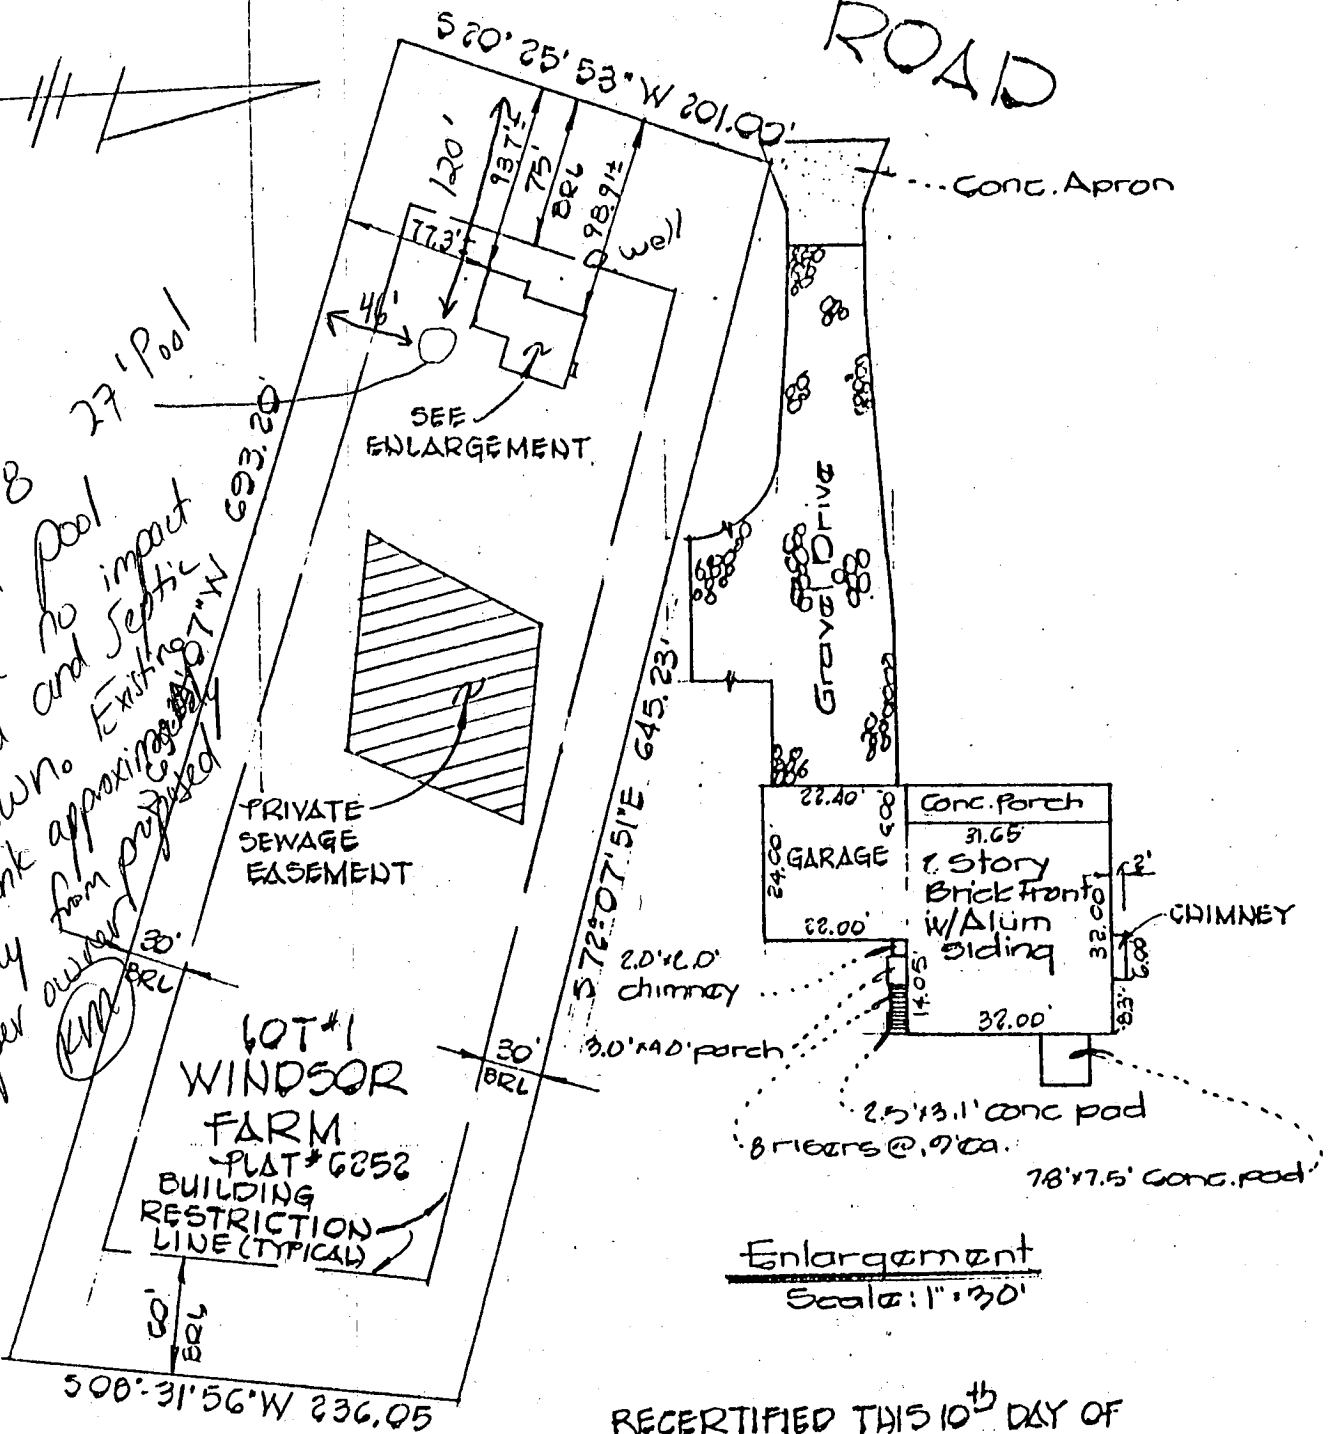 ROAD
S 20° 25' 53" W 201.00'
Conc. Apron
120'
93.7'±
75'
BRL
98.9'±
Well
77.3'±
46'
27' Pool
SEE
ENLARGEMENT
693.20'
8
pool
no impact
and Septic
Existing
approximately
from proposed
owner
KM
07" W
Gravel Drive
S 72° 07' 51" E 645.23'
PRIVATE
SEWAGE
EASEMENT
30'
BRL
30'
BRL
LOT #1
WINDSOR
FARM
PLAT # 6252
BUILDING
RESTRICTION
LINE (TYPICAL)
60'
BRL
S 08°-31'56" W 236.05
22.40'
6.00
Conc. Porch
31.65'
GARAGE
24.00'
22.00'
2 Story
Brick Front
w/Alum
Siding
2'
32.00
CHIMNEY
6.00
8.3'
14.05'
32.00'
2.0'x2.0'
chimney
3.0'x4.0' porch
2.5'x3.1' conc pad
8 risers @ .9' ea.
7.8'x7.5' conc. pad
Enlargement
Scale: 1" = 30'
RECERTIFIED THIS 10th DAY OF